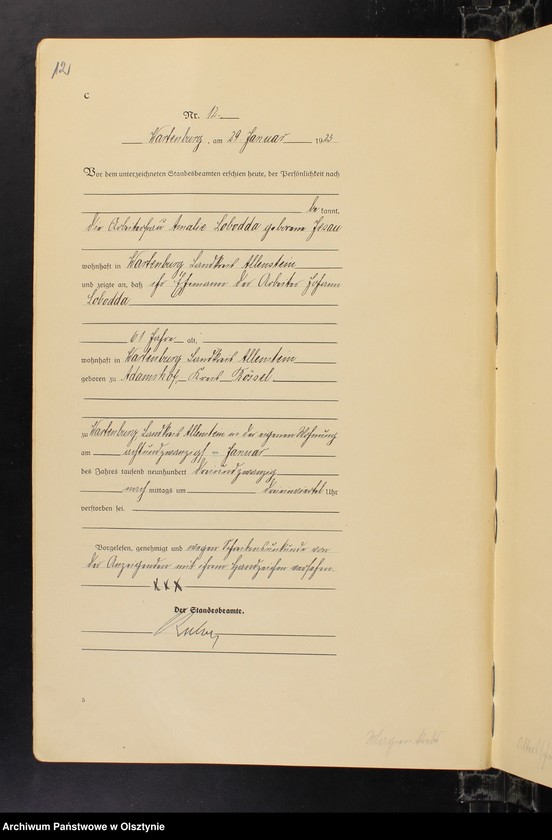 12
C
Nr. 12
Wartenburg, am 29 Januar 1923
Vor dem unterzeichneten Standesbeamten erschien heute, der Persönlichkeit nach
be kannt,
die Arbeiterfrau Amalie Lobodda geborene Jesau
wohnhaft in Wartenburg Landkreis Allenstein
und zeigte an, daß ihr Ehemann der Arbeiter Johann
Lobodda
61 Jahre alt,
wohnhaft in Wartenburg Landkreis Allenstein
geboren zu Adamshof, Kreis Rössel
zu Wartenburg, Landkreis Allenstein in der eigenen Wohnung
am achtundzwanzigsten Januar
des Jahres tausend neunhundert dreiundzwanzig
nach mittags um dreiviertel Uhr
verstorben sei.
Vorgelesen, genehmigt und wegen Schreibensunkunde von
der Anzeigenden mit ihrem Handzeichen versehen.
XXX
Der Standesbeamte.
5
Archiwum Państwowe w Olsztynie